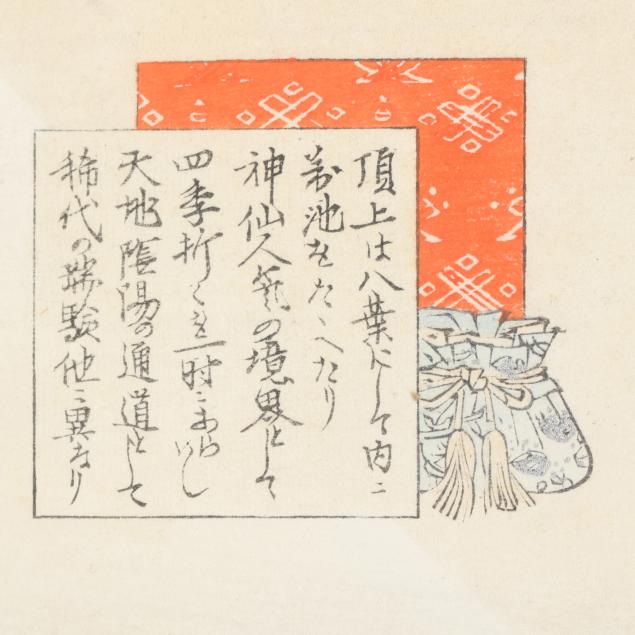 頂上は八葉にして内ニ
池をたゝへたり
神仙人の境界として
四季折〱を一時ニあらいし
天地陰陽の通道として
稀代の瑞験他ニ異なり